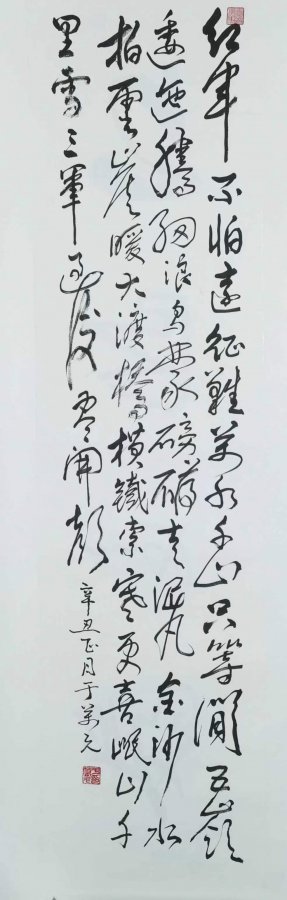 紅軍不怕遠征難萬水千山只等閒五嶺
逶迤騰細浪烏蒙磅礴走泥丸金沙水
拍雲崖暖大渡橋橫鐵索寒更喜岷山千
里雪三軍過後盡開顏
辛丑正月于萬元